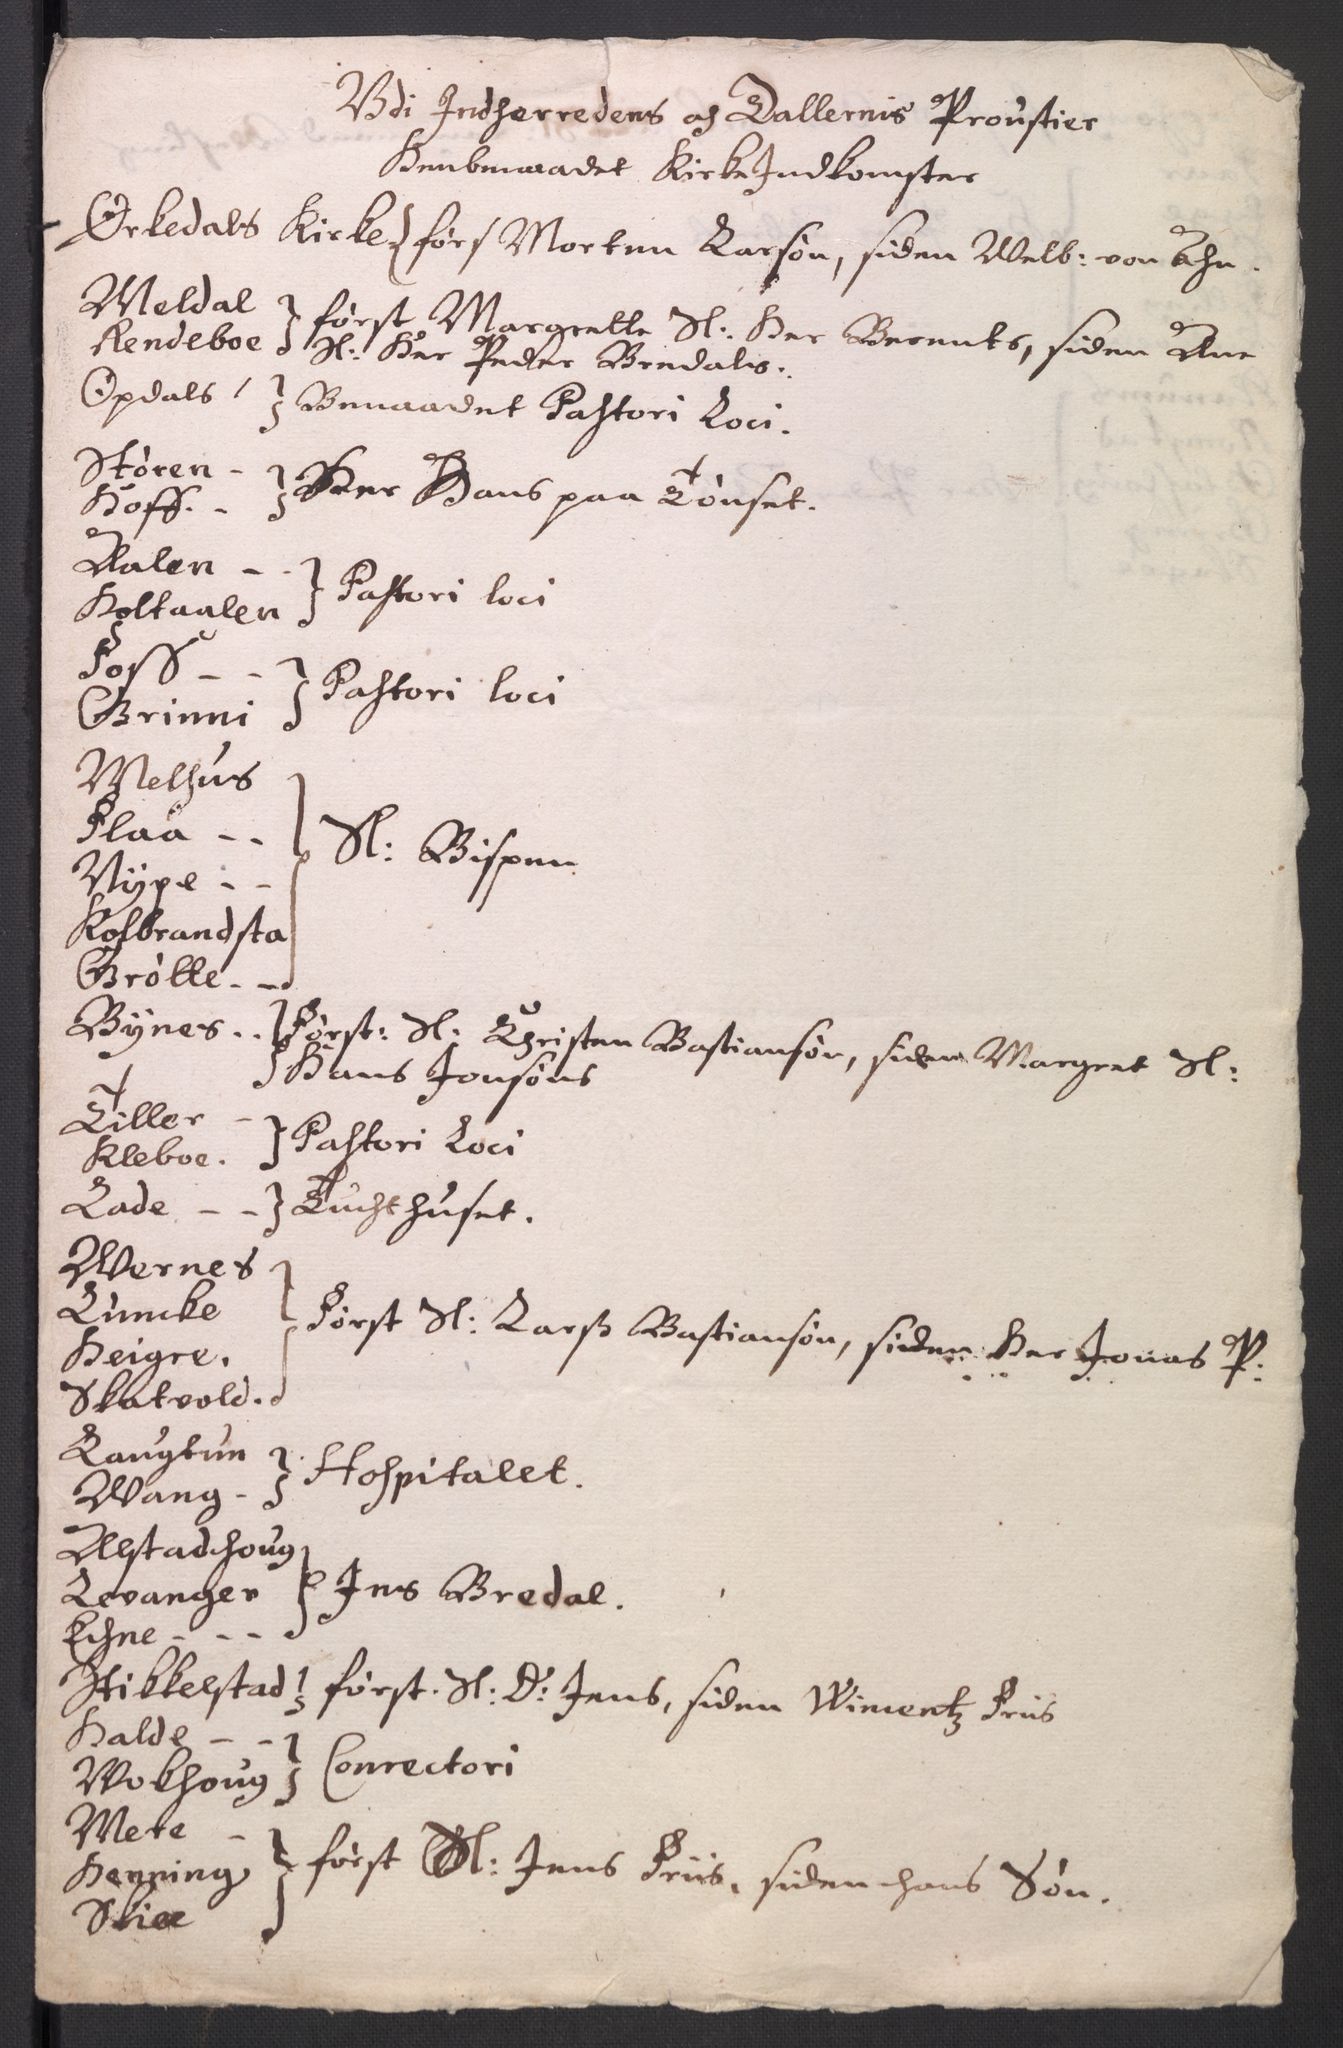 Vdi Indherredens oc Dallernis Proustier
Henbenaadet Kirke Indkomster
Ørkedals Kirke } førs Morten Larsøn, siden Welb: von Ahn.
Meldal
Rendeboe } først Margrette Sl: Her Berents, siden Ane
Sl: Her Peder Bredals.
Opdals } Benaadet Pastori Loci.
Støren -
Hoff. - } Her Hans paa Tønset.
Aalen - -
Holtaalen } Pastori loci
Foss - -
Grinni } Pastori loci
Melhus
Flaa - -
Vÿpe - -
Kolbrandsta
Brølle - - } Sl: Bispen
Bÿnes - - } Først: Sl: Christen Bastiansøn, siden Margret Sl:
Hans Jonsøns
Tiller -
Kleboe. } Pastori Loci
Lade - - } Tuchthuset.
Wernes
Luncke
Heigre.
Skatvold. } Først Sl: Larss Bastiansøn, siden Her Jonas P:
Laugtun
Wang - } Hospitalet.
Alstadhoug
Levanger
Echne - - - } Jens Bredal.
Stikkelstad } først. Sl: D: Jens, siden Wimentz Friis
Halde - -
Wokhoug } Conrectori
Mere -
Henning
Skiee } først Sl: Jens Friis, siden hans Søn.